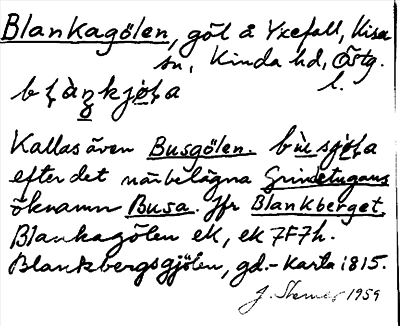 Blankagölen, göl å Yxefall, Kisa
sn, Kinda hd, Östg.
l.
Kallas även Busgölen.
efter det närbelägna Grindstugans
öknamn Busa. Jfr Blankberget.
Blankagölen ek, ek 7F7h.
Blankbergsgjölen, gd.-karta 1815.
J. 1959